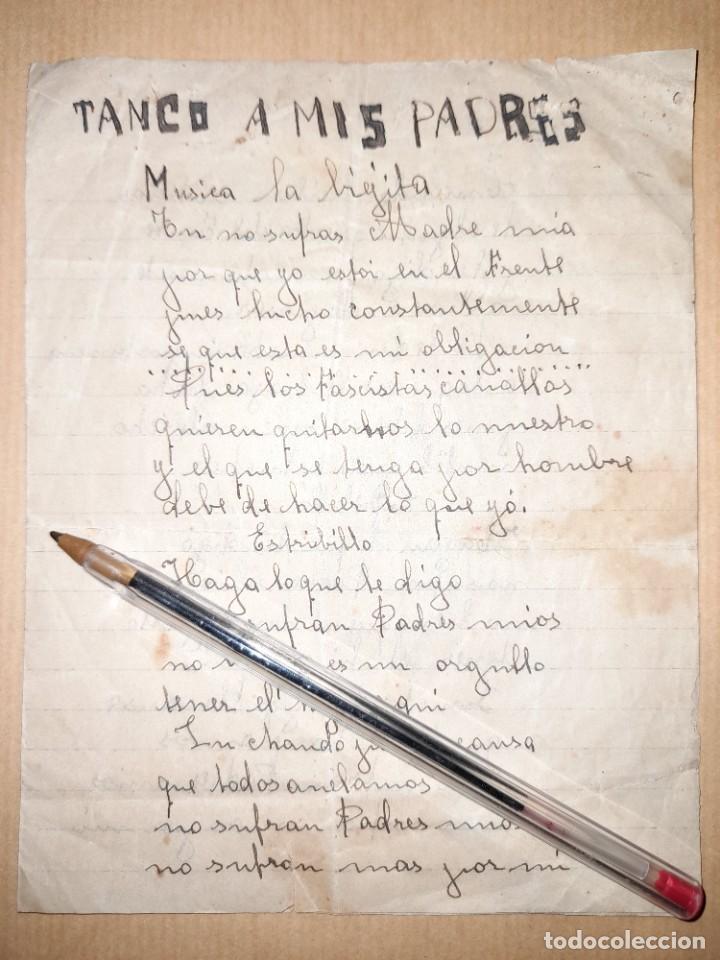 TANCO A MIS PADRES
Musica la biejita
Tu no sufras Madre mia
por que yo estoi en el Frente
pues lucho constantemente
se que esta es mi obligacion
Pues los Fascistas canallas
quieren quitarnos lo nuestro
y el que se tenga por hombre
debe de hacer lo que yó.
Estribillo
Haga lo que le digo
sufran Padres mios
no es un orgullo
tener el
Luchando causa
que todos anelamos
no sufran Padres
no sufran mas por mi
todocoleccion
todocoleccion.net